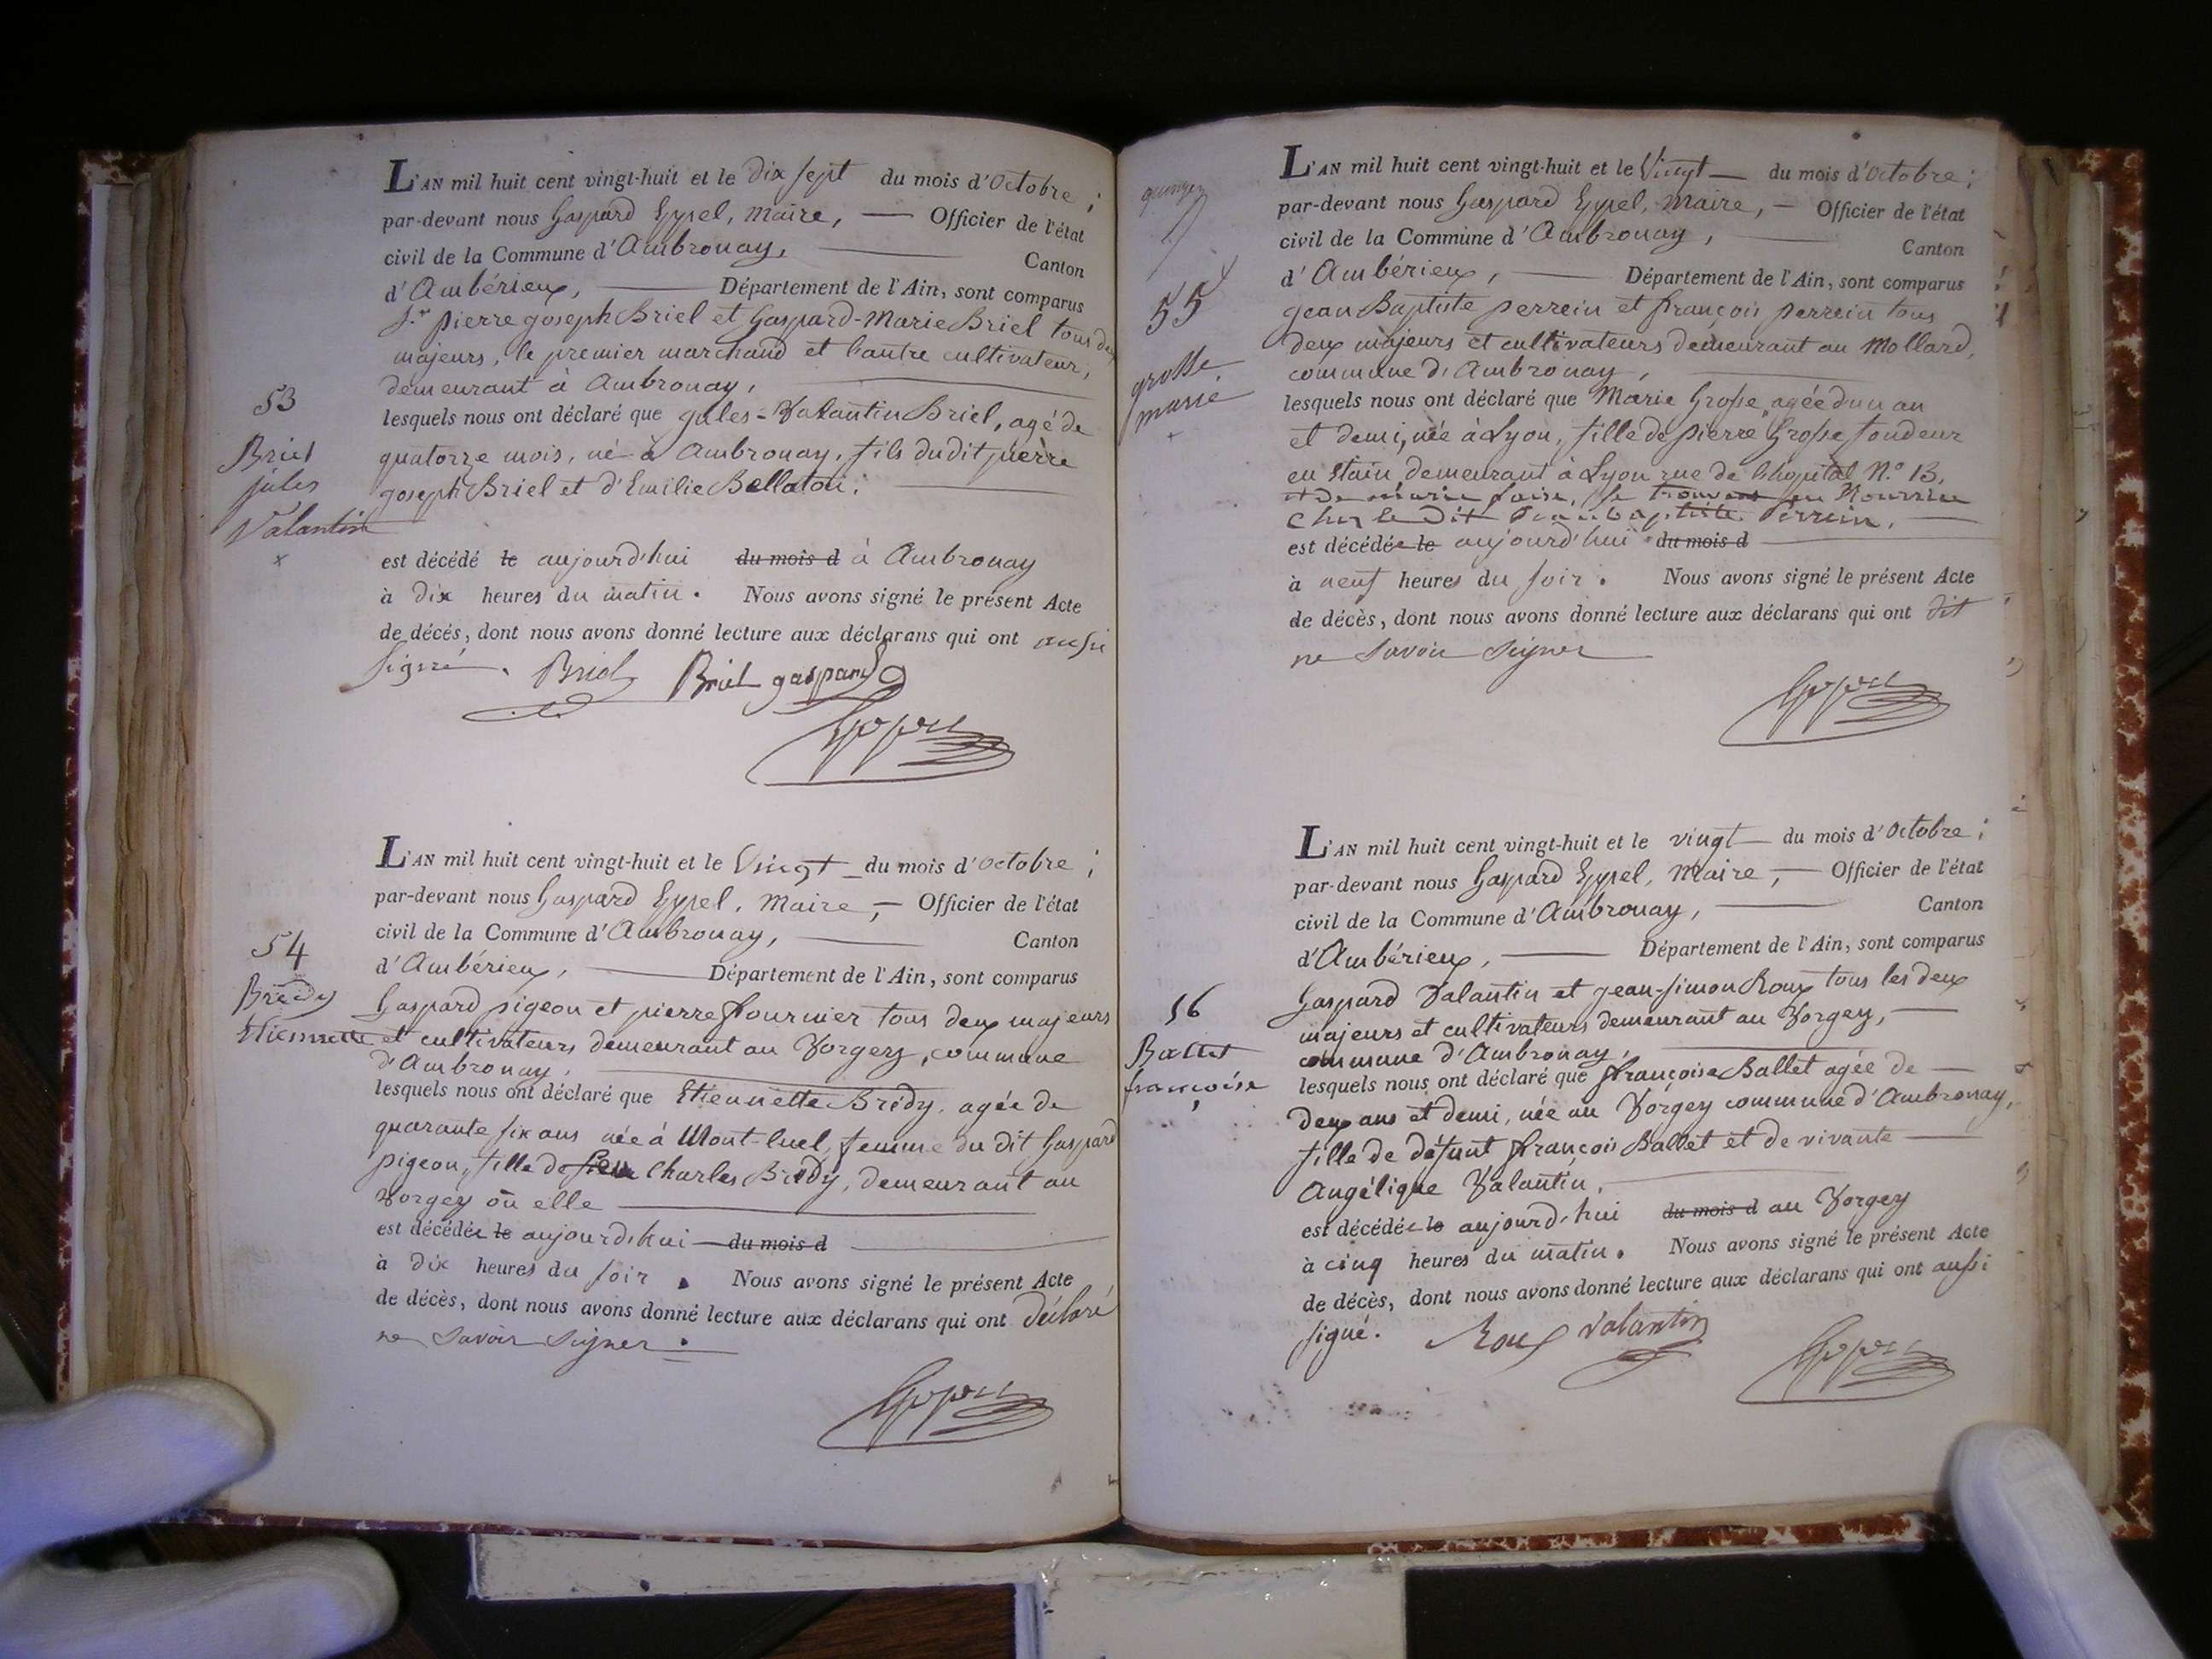 53
Briel
jules
Valantin
L'AN mil huit cent vingt-huit et le dix sept du mois d'Octobre ;
par-devant nous Gaspard Eypel, Maire, — Officier de l'état
civil de la Commune d'Ambronay, — Canton
d'Ambérieux, — Département de l'Ain, sont comparus
S.r pierre joseph Briel et Gaspard-Marie Briel tous deux
majeurs, le premier marchand et l'autre cultivateur,
demeurant à Ambronay,
lesquels nous ont déclaré que jules-Valantin Briel, agé de
quatorze mois, né à Ambronay, fils dudit pierre
joseph Briel et d'Emilie Bellaton.
est décédé le aujourd'hui du mois d à Ambronay
à dix heures du matin. Nous avons signé le présent Acte
de décés, dont nous avons donné lecture aux déclarans qui ont aussi
signé. Briel Briel gaspard
54
Brédy
Etiennette
L'AN mil huit cent vingt-huit et le Vingt — du mois d'Octobre ;
par-devant nous Gaspard Eypel, Maire, — Officier de l'état
civil de la Commune d'Ambronay, — Canton
d'Ambérieux, — Département de l'Ain, sont comparus
Gaspard pigeon et pierre fournier tous deux majeurs
et cultivateurs demeurant au Vorgey, commune
d'Ambronay,
lesquels nous ont déclaré que Etiennette Brédy, agée de
quarante six ans née à Mont-luel, femme du dit Gaspard
pigeon, fille de feu Charles Brédy, demeurant au
Vorgey où elle
est décédée le aujourd'hui — du mois d
à dix heures du soir. Nous avons signé le présent Acte
de décès, dont nous avons donné lecture aux déclarans qui ont déclaré
ne savoir signer.
55
grosse
marie
L'AN mil huit cent vingt-huit et le Vingt — du mois d'Octobre ;
par-devant nous Gaspard Eypel, Maire, — Officier de l'état
civil de la Commune d'Ambronay, — Canton
d'Ambérieux, — Département de l'Ain, sont comparus
jean Baptiste perrein et françois perrein tous
deux majeurs et cultivateurs demeurant au Mollard,
commune d'Ambronay,
lesquels nous ont déclaré que Marie Grosse, agée d'un an
et demi, née à Lyon, fille de pierre Grosse fondeur
en Etain, demeurant à Lyon rue de l'hopital N.o 13,
et de marie se trouvant en Nourrice
Chez le Dit Jean baptiste Perrein,
est décédée le aujourd'hui du mois d
à neuf heures du soir. Nous avons signé le présent Acte
de décès, dont nous avons donné lecture aux déclarans qui ont dit
ne savoir signer
56
Ballet
françoise
L'AN mil huit cent vingt-huit et le vingt — du mois d'Octobre ;
par-devant nous Gaspard Eypel, Maire, — Officier de l'état
civil de la Commune d'Ambronay, — Canton
d'Ambérieux, — Département de l'Ain, sont comparus
Gaspard Valantin et jean-simon Roux tous les deux
majeurs et cultivateurs demeurant au Vorgey, —
commune d'Ambronay,
lesquels nous ont déclaré que françoise Ballet agée de —
deux ans et demi, née au Vorgey commune d'Ambronay,
fille de défunt françois Ballet et de vivante —
Angélique Valantin,
est décédée le aujourd'hui du mois d au Vorgey
à cinq heures du matin. Nous avons signé le présent Acte
de décès, dont nous avons donné lecture aux déclarans qui ont aussi
signé. Roux Valantin